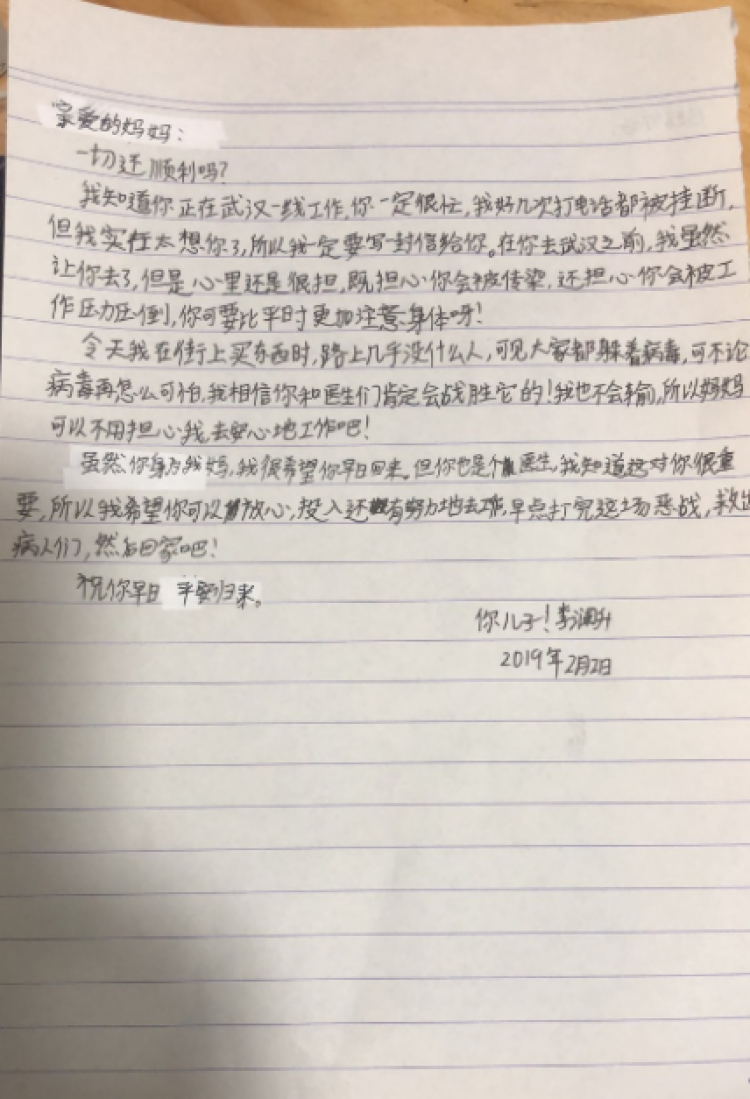 亲爱的妈妈：
一切还顺利吗？
我知道你正在武汉一线工作，你一定很忙，我好几次打电话都被挂断，
但我实在太想你了，所以我一定要写一封信给你。在你去武汉之前，我虽然
让你去了，但是心里还是很担，既担心你会被传染，还担心你会被工
作压力压倒，你可要比平时更加注意身体呀！
今天我在街上买东西时，路上几乎没什么人，可见大家都躲着病毒，可不论
病毒再怎么可怕，我相信你和医生们肯定会战胜它的！我也不会输，所以妈妈
可以不用担心我，去安心地工作吧！
虽然你身为我妈，我很希望你早日回来。但你也是个医生，我知道这对你很重
要，所以我希望你可以放心，投入还有努力地去工作，早点打完这场恶战，救
病人们，然后回家吧！
祝你早日平安归来。
你儿子！李润升
2019年2月2日